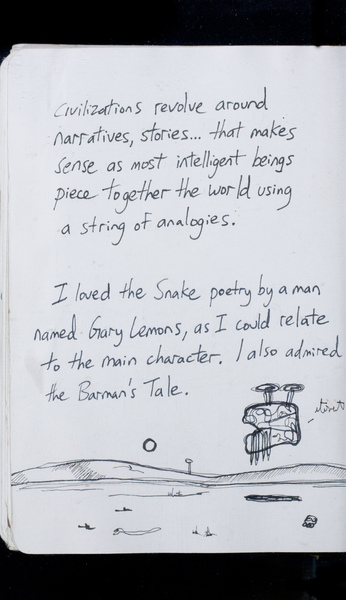 Civilizations revolve around
narratives, stories... that makes
sense as most intelligent beings
piece together the world using
a string of analogies.
I loved the Snake poetry by a man
named Gary Lemons, as I could relate
to the main character. I also admired
the Barman's Tale.